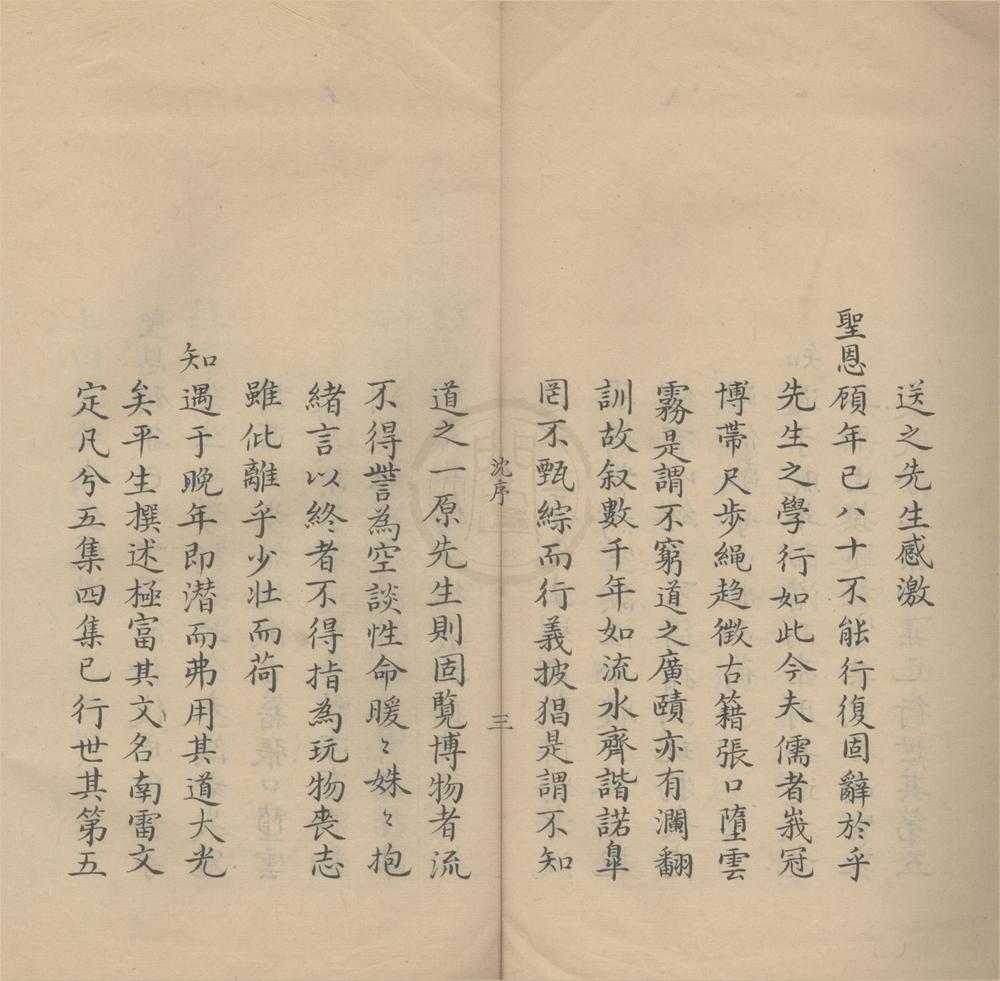 送之先生感激
聖恩顧年已八十不能行復固辭於乎
先生之學行如此今夫儒者峩冠
博帶尺步繩趋徴古籍張口墮雲
霧是謂不窮道之廣賾亦有瀾翻
訓故叙數千年如流水齊諧諾皐
罔不甄綜而行義披猖是謂不知
沈序
三
道之一原先生則固覽博物者流
不得訾為空談性命暖〻姝〻抱
緒言以終者不得指為玩物喪志
雖仳離乎少壮而荷
知遇于晚年即潜而弗用其道大光
矣平生撰述極富其文名南雷文
定凡兮五集四集已行世其第五